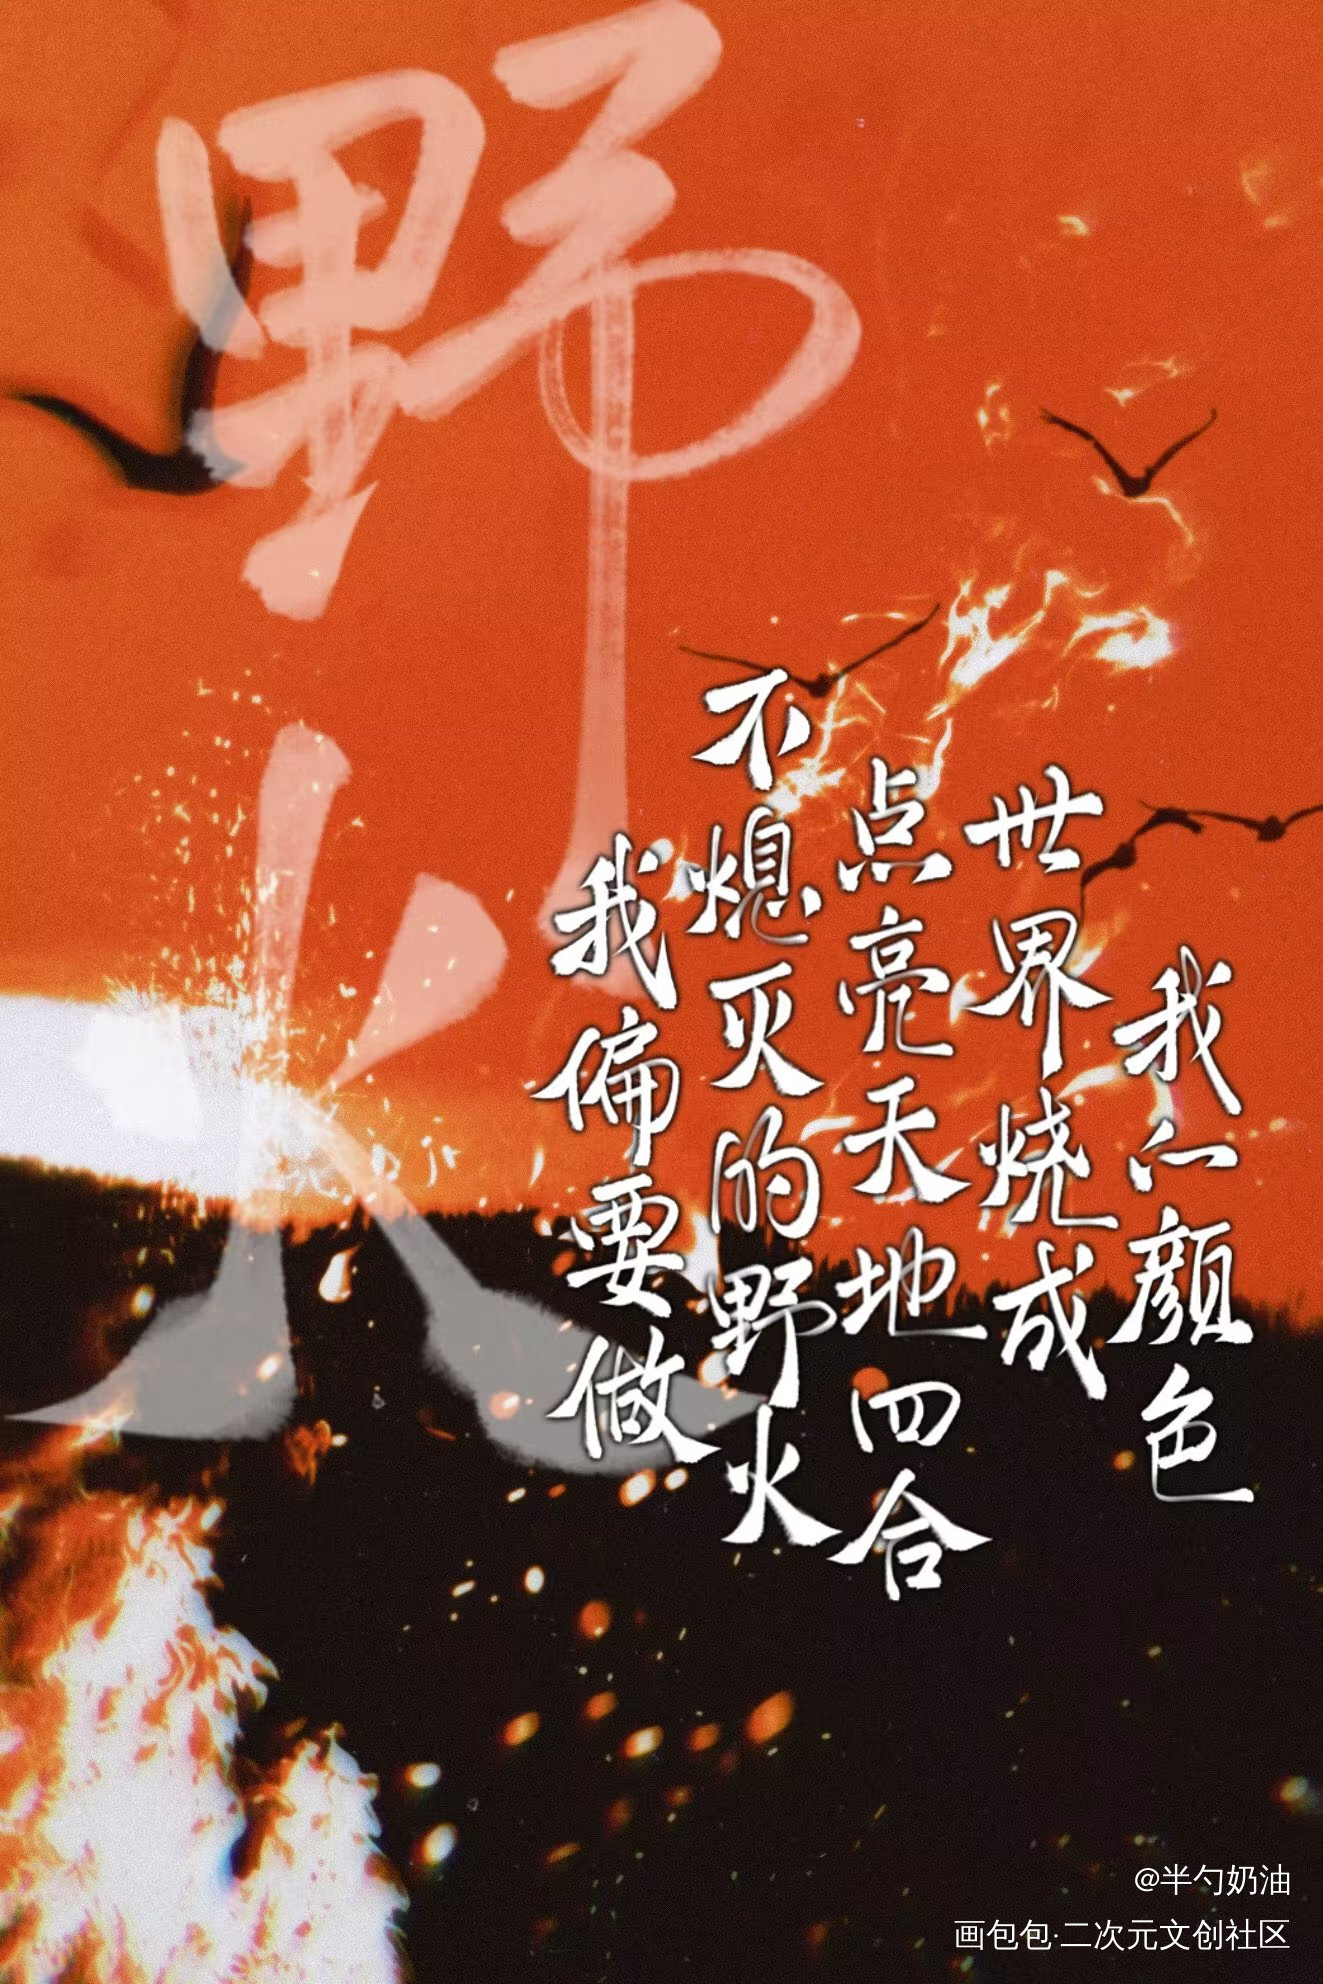 野火
我偏要做
不熄灭的野火
点亮天地四合
世界烧成
我心颜色
@半勺奶油
画包包·二次元文创社区